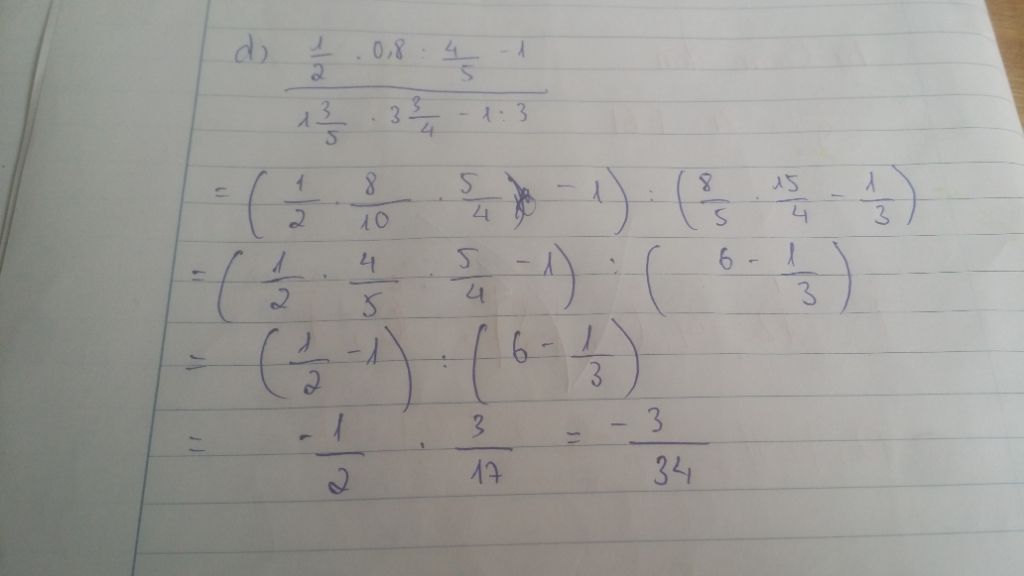 d) 1/2 · 0,8 : 4/5 - 1
1 3/5 · 3 3/4 - 1 : 3
= (1/2 · 8/10 · 5/4 - 1) : (8/5 · 15/4 - 1/3)
= (1/2 · 4/5 · 5/4 - 1) : (6 - 1/3)
= (1/2 - 1) : (6 - 1/3)
= -1/2 · 3/17 = -3/34